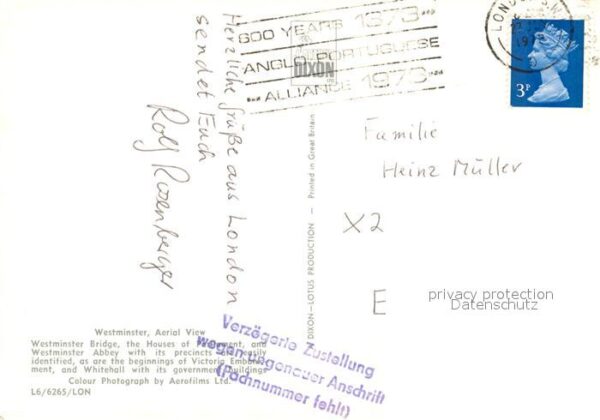 Herzliche Grüße aus London
sendet Euch
Rolf Rosenberger
600 YEARS 1373
ANGLO-PORTUGUESE
ALLIANCE 1973
DIXON
LONDON
3P
Familie
Heinz Müller
X2
E
privacy protection
Datenschutz
DIXON—LOTUS PRODUCTION — Printed in Great Britain
Westminster, Aerial View
Westminster Bridge, the Houses of Parliament, and
Westminster Abbey with its precincts are easily
identified, as are the beginnings of Victoria Embank-
ment, and Whitehall with its government buildings
Colour Photograph by Aerofilms Ltd.
L6/6265/LON
Verzögerte Zustellung
wegen ungenauer Anschrift
(Fachnummer fehlt)